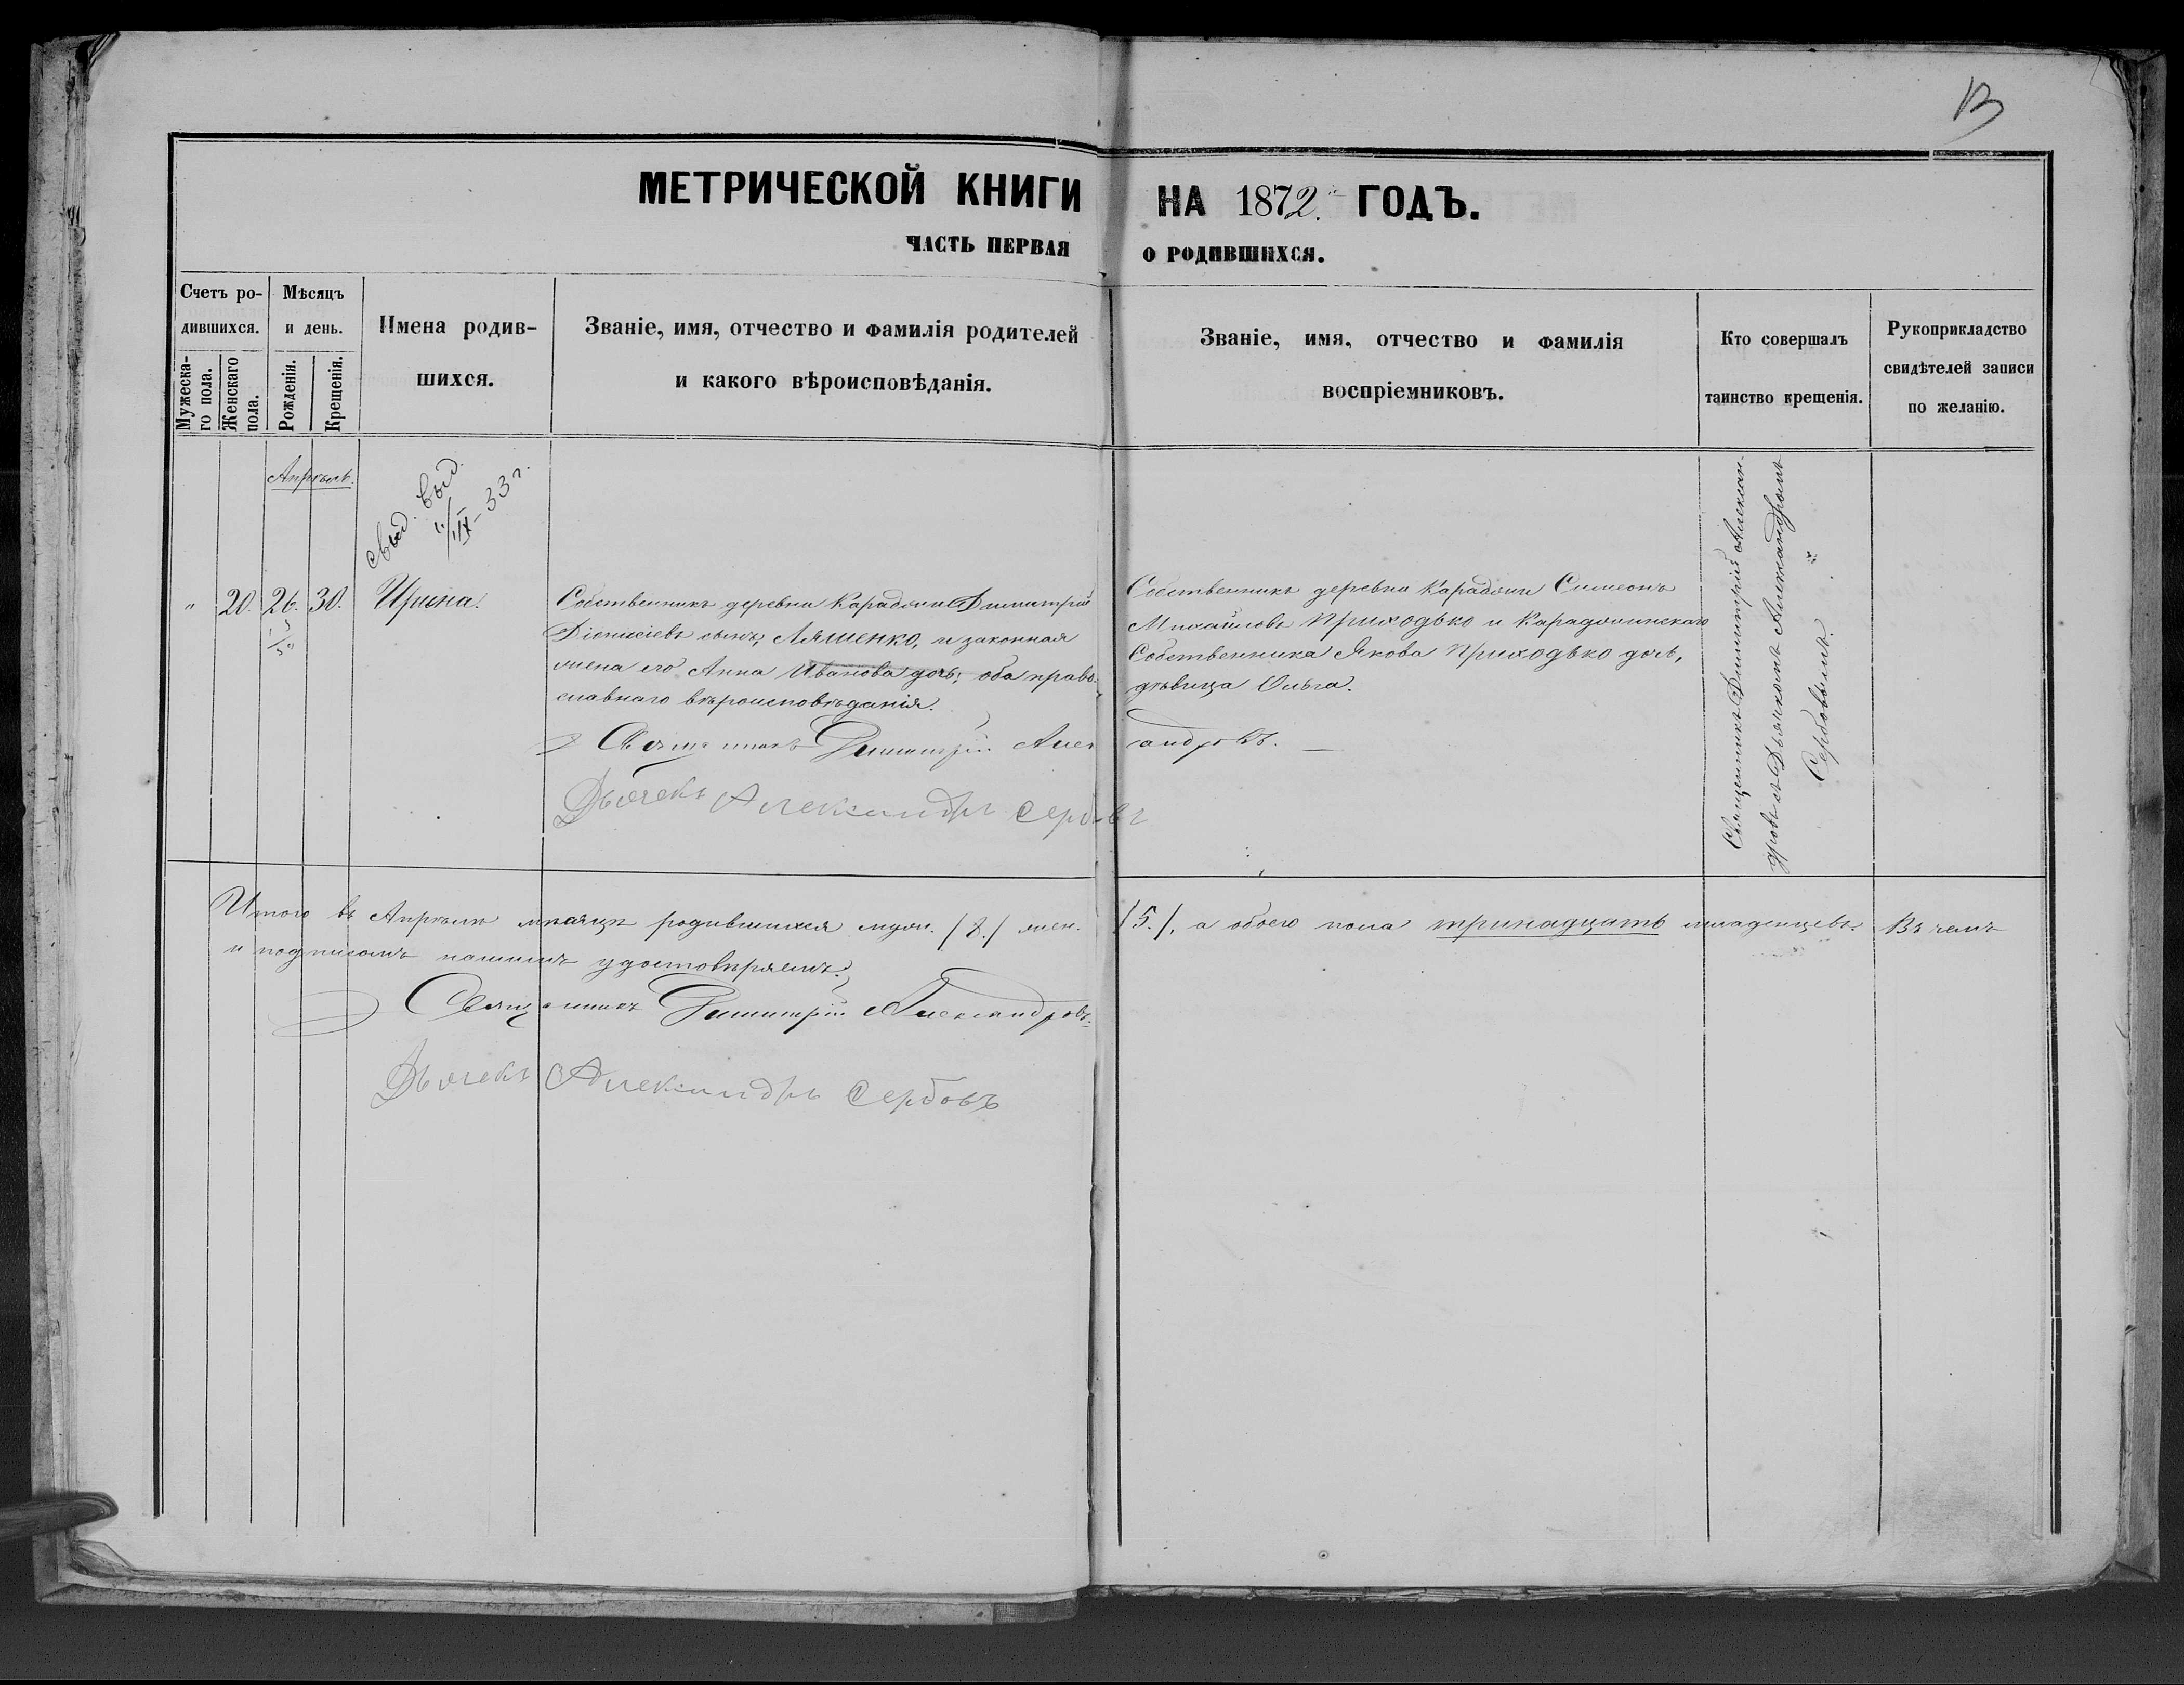 13
МЕТРИЧЕСКОЙ КНИГИ НА 1872. ГОДЪ.
ЧАСТЬ ПЕРВАЯ О РОДИВШИХСЯ.
Счетъ ро-
дившихся.
Мужеска-
го пола.
Женскаго
пола.
Мѣсяцъ
и день.
Рожденія.
Крещенія.
Имена родив-
шихся.
Званіе, имя, отчество и фамилія родителей
и какого вѣроисповѣданія.
Званіе, имя, отчество и фамилія
воспріемниковъ.
Кто совершалъ
таинство крещенія.
Рукоприкладство
свидѣтелей записи
по желанію.
Апрѣль.
свид. выд.
1/IX-33 г.
" 20. 26. 30. Ирина.
Собственникъ деревни Димитрій
Діонисіевъ сынъ, Ляшенко, и законная
жена его Анна Иванова дочь; оба право-
славнаго вѣроисповѣданія.
Собственникъ деревни Симеонъ
Михайловъ Приходько и
Собственника Якова Приходько дочь,
дѣвица Ольга.
Священникъ Димитрій Алексан-
дровъ съ Дьячкомъ Александромъ
Сербовымъ.
Священникъ Димитрій Александровъ.
Дьячекъ Александръ Сербовъ
Итого въ Апрѣлѣ мѣсяцѣ родившихся муж. /8./ жен. /5./, а обоего пола тринадцать младенцевъ. Въ чемъ
и подписомъ нашимъ удостовѣряемъ:
Священникъ Димитрій Александровъ.
Дьячекъ Александръ Сербовъ